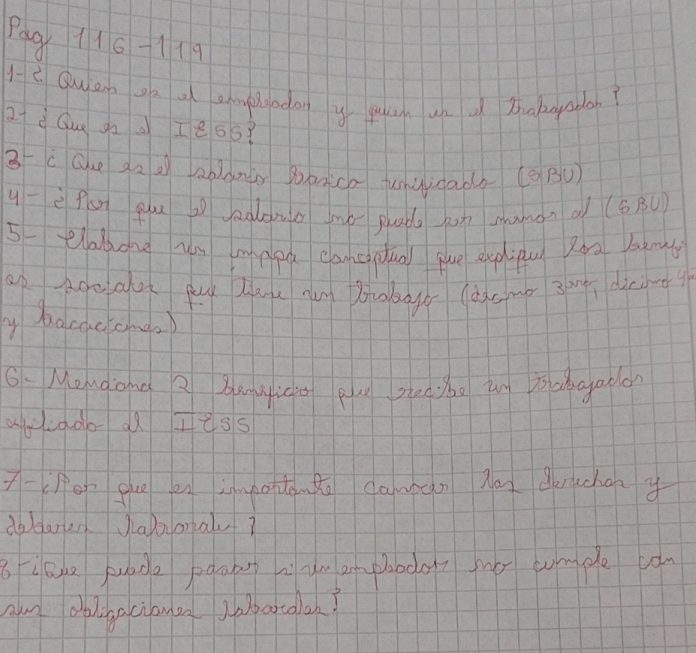 Pag 116-119
1- ¿Quien es el empleador y quien es el trabajador?
2- ¿Que es el IESS?
3- ¿Que es el salario basico unificado (SBU)
4- ¿Por que el salario no puede ser menor al (SBU)
5- elabore un mapa conceptual que explique los benefi
os sociales que tiene un trabajo (decimo 3ero, dicimo 4to
y bacaciones)
6- Menciona 2 beneficios que recibe un trabajador
afiliado al IESS
7- ¿Por que es importante conocer los derechos y
deberes laborales?
8- ¿Que puede pasar si un empleador no cumple con
sus obligaciones laborales?